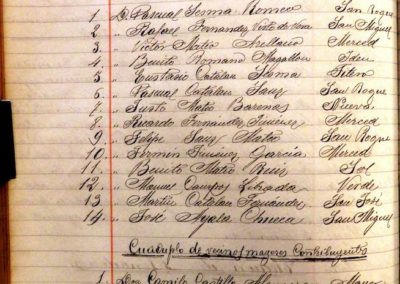 1. D. Pascual Sesma Romeo San Roque
2 " Rafael Fernández Virto de Vera San Miguel
3. " Victor Mateo Arellano Merced
4 " Benito Romano Magallón Iden
5 " Eustasio Catalan Sesma
6 " Pascual Catalan Sanz San Roque
7 " Justo Mateo Barenas Nueva
8 " Ricardo Fernández Jiménez Merced
9 " Felipe Sanz Mateo San Roque
10 " Fermin Jiménez García Merced
11. " Benito Mateo Ruiz Sol
12. " Manuel Campos Verde
13. " Martin Catalan Fernández San José
14. " José Ayala Chueca San Miguel
Cuadruplo de vecinos mayores Contribuyentes
1. Don Camilo Castillo